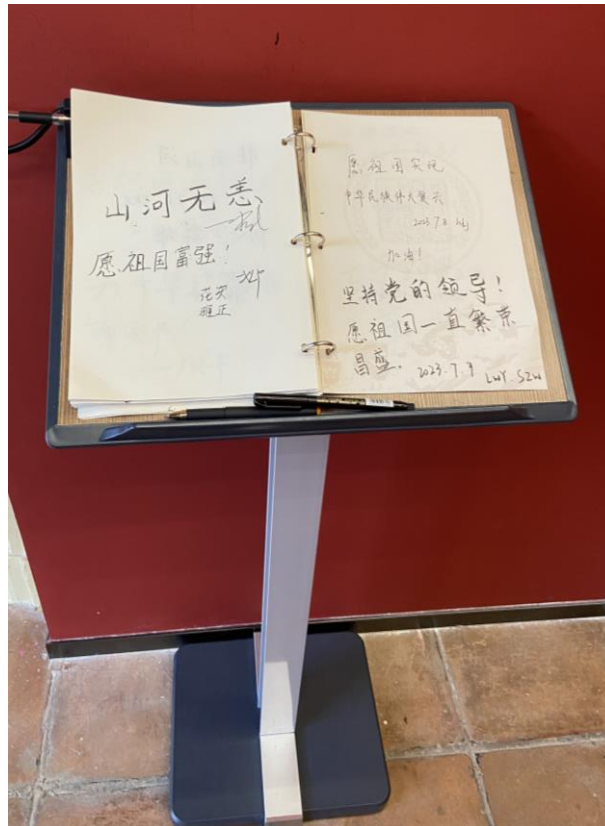 山河无恙
愿祖国富强!
愿祖国实现
中华民族伟大复兴
2023.7.8
加油!
坚持党的领导!
愿祖国一直繁荣
昌盛. 2023.7.9 LWY. SZW